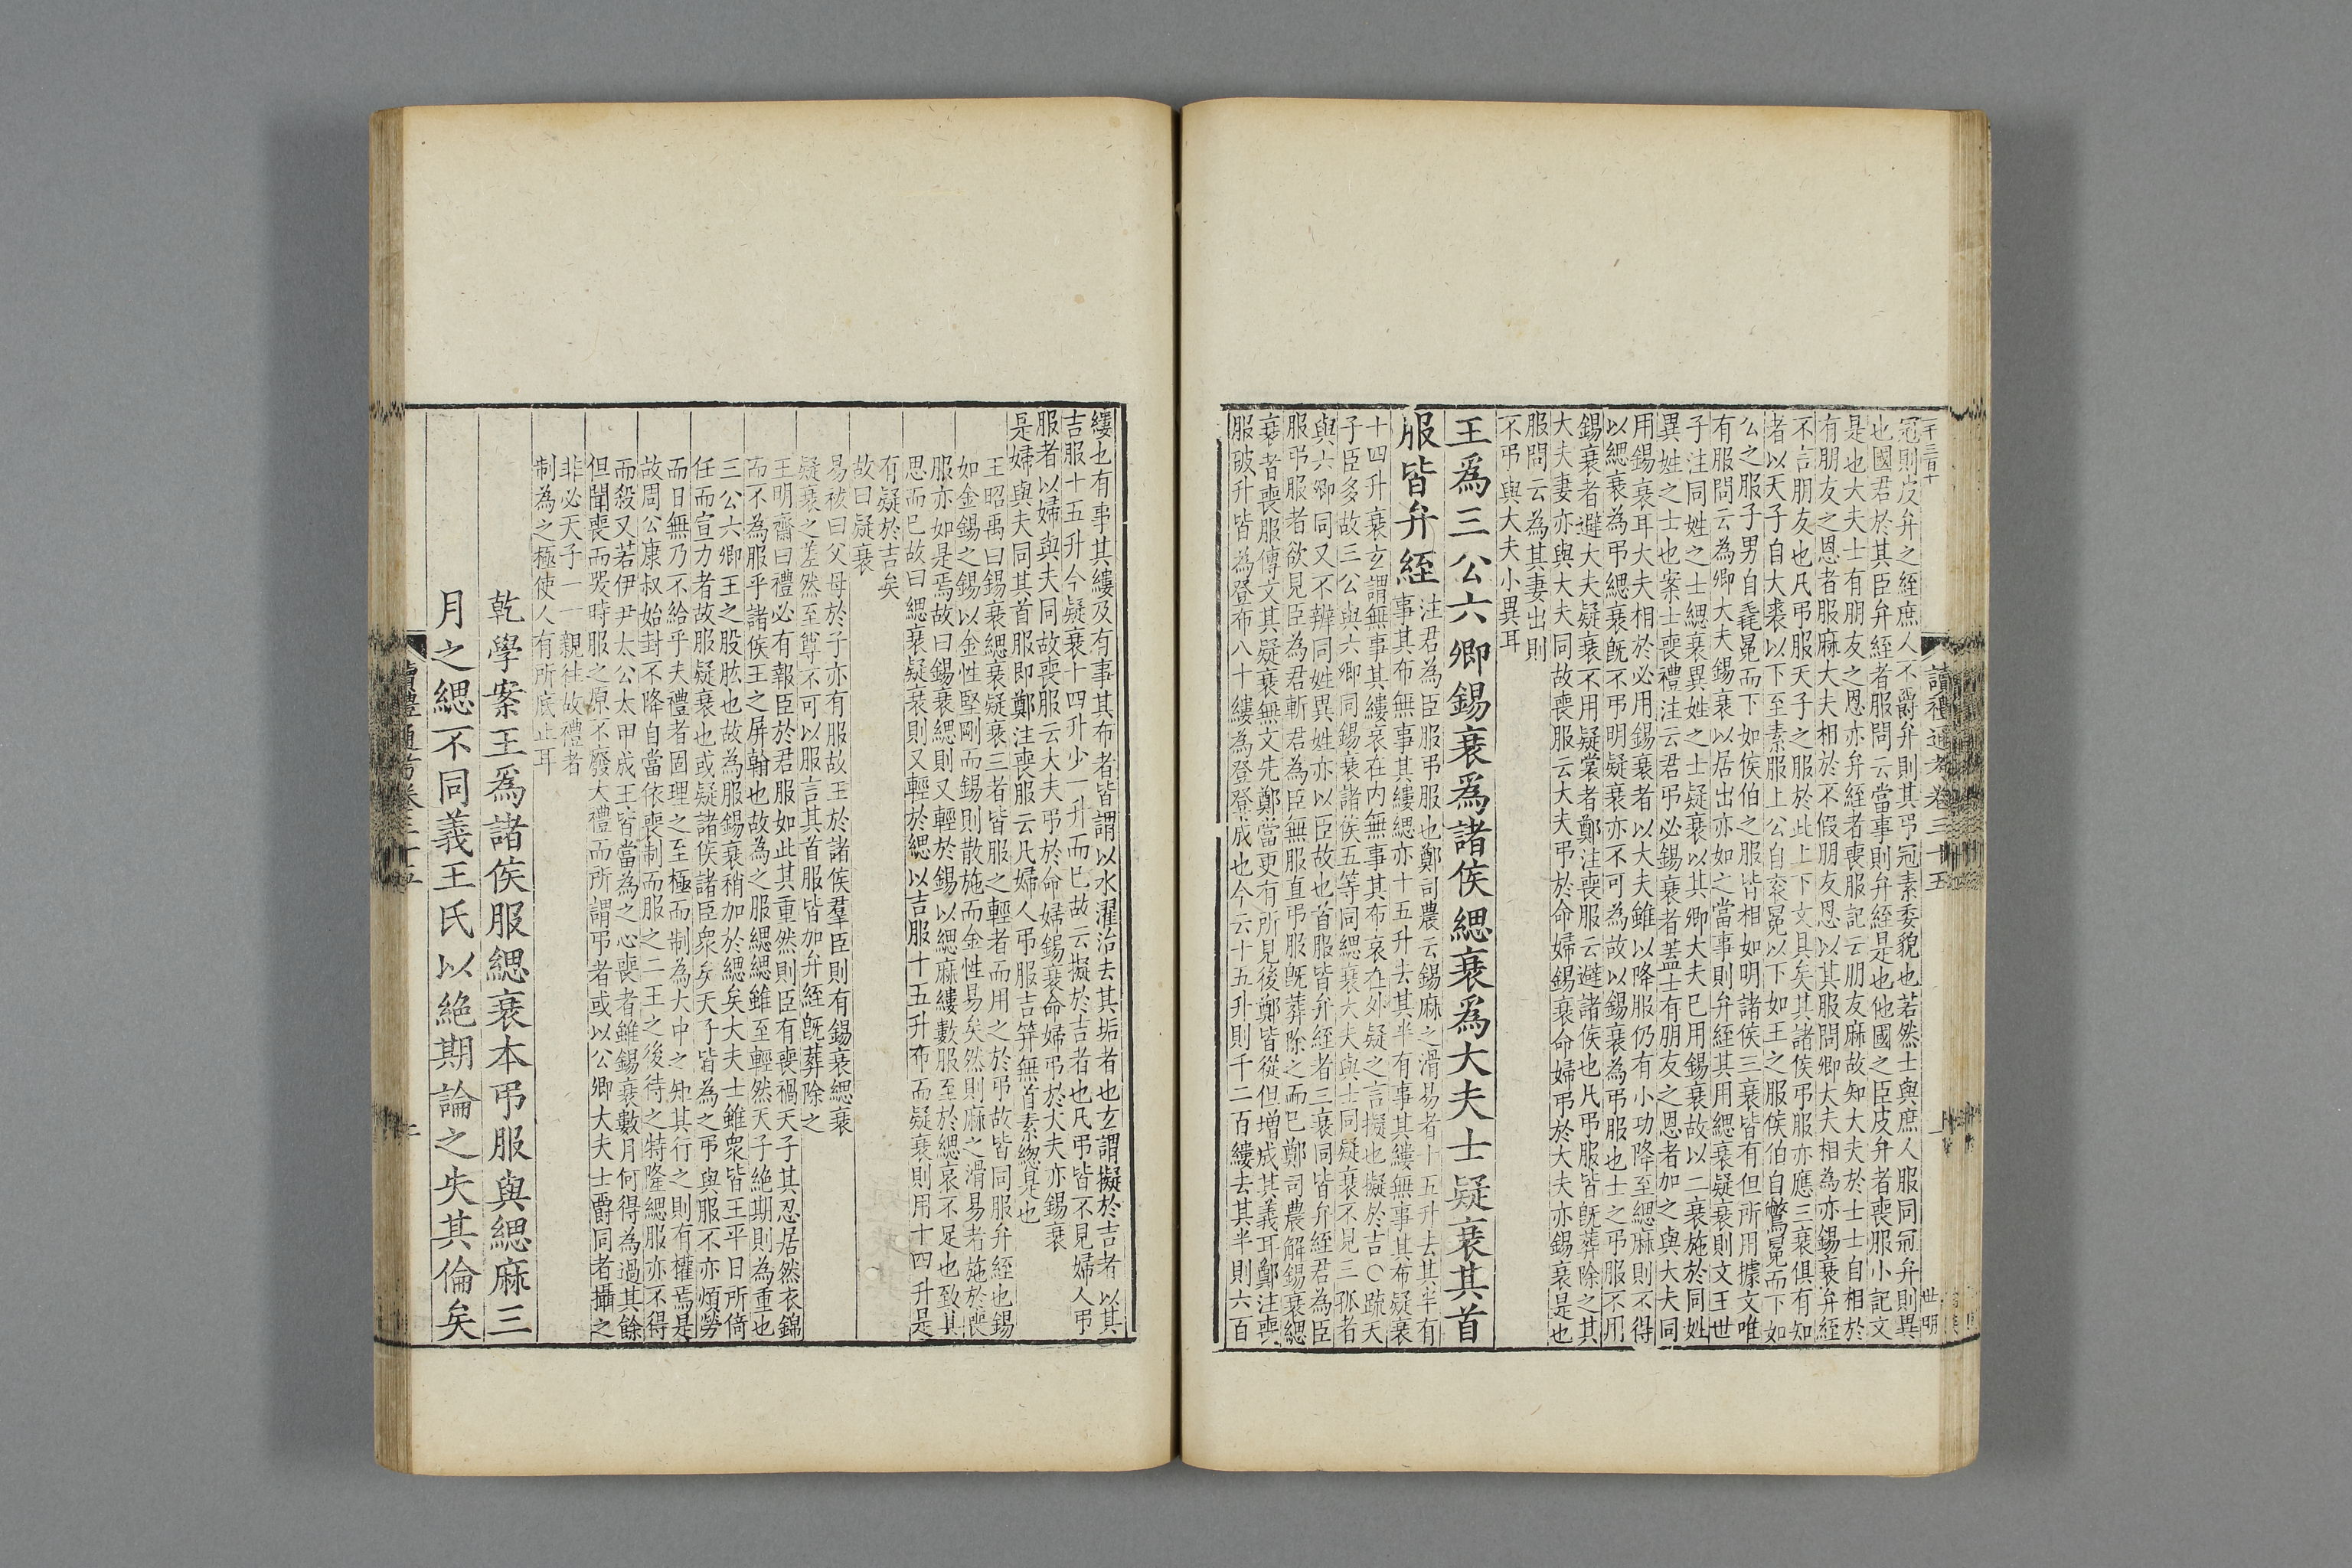 冠則皮弁之絰庶人不爵弁則其弔冠素委貌也若然士與庶人服同冠弁則異
也國君於其臣弁絰者服問云當事則弁絰是也他國之臣皮弁者喪服小記文
是也大夫士有朋友之恩亦弁絰者喪服記云朋友麻故知大夫於士士自相於
有朋友之恩者服麻大夫相於不假朋友恩以其服問卿大夫相為亦錫衰弁絰
不言朋友也凡弔服天子之服於此上下文具矣其諸侯弔服亦應三衰俱有知
者以天子自大裘以下至素服上公自衮冕以下如王之服侯伯自鷩冕而下如
公之服子男自毳冕而下如侯伯之服皆相如明諸侯三衰皆有但所用據文唯
有服問云為卿大夫錫衰以居出亦如之當事則弁絰其用緦衰疑衰則文王世
子注同姓之士緦衰異姓之士疑衰以其卿大夫已用錫衰故以二衰施於同姓
異姓之士也案士喪禮注云君弔必錫衰者蓋士有朋友之恩者加之與大夫同
用錫衰耳大夫相於必用錫衰者以大夫雖以降服仍有小功降至緦麻則不得
以緦衰為弔緦衰既不弔明疑衰亦不可為故以錫衰為弔服也士之弔服不用
錫衰者避大夫疑衰不用疑裳者鄭注喪服云避諸侯也凡弔服皆既葬除之其
大夫妻亦與大夫同故喪服云大夫弔於命婦錫衰命婦弔於大夫亦錫衰是也
服問云為其妻出則
不弔與大夫小異耳
王爲三公六卿錫衰爲諸侯緦衰爲大夫士疑衰其首
服皆弁絰
注君為臣服弔服也鄭司農云錫麻之滑易者十五升去其半有
事其布無事其縷緦亦十五升去其半有事其縷無事其布疑衰
十四升衰玄謂無事其縷哀在內無事其布哀在外疑之言擬也擬於吉○疏天
子臣多故三公與六卿同錫衰諸侯五等同緦衰大夫與士同疑衰不見三孤者
與六卿同又不辨同姓異姓亦以臣故也首服皆弁絰者三衰同皆弁絰君為臣
服弔服者欲見臣為君斬君為臣無服直弔服既葬除之而已鄭司農解錫衰緦
衰者喪服傳文其疑衰無文先鄭當更有所見後鄭皆從但增成其義耳鄭注喪
服破升皆為登布八十縷為登登成也今云十五升則千二百縷去其半則六百
讀禮通考卷三十五
世明
縷也有事其縷及有事其布者皆謂以水濯治去其垢者也玄謂擬於吉者以其
吉服十五升今疑衰十四升少一升而已故云擬於吉者也凡弔皆不見婦人弔
服者以婦與夫同故喪服云大夫弔於命婦錫衰命婦弔於大夫亦錫衰
是婦與夫同其首服即鄭注喪服云凡婦人弔服吉笄無首素緫是也
王昭禹曰錫衰緦衰疑衰三者皆服之輕者而用之於弔故皆同服弁絰也錫
如金錫之錫以金性堅剛而錫則散施而金性易矣然則麻之滑易者施於喪
服亦如是焉故曰錫衰緦則又輕於錫以緦麻縷數服至於緦哀不足也致其
思而已故曰緦衰疑衰則又輕於緦以吉服十五升布而疑衰則用十四升是
有疑於吉矣
故曰疑衰
易祓曰父母於子亦有服故王於諸侯羣臣則有錫衰緦衰
疑衰之差然至尊不可以服言其首服皆加弁絰既葬除之
王明齋曰禮必有報臣於君服如此其重然則臣有喪禍天子其忍居然衣錦
而不為服乎諸侯王之屏翰也故為之服緦緦雖至輕然天子絶期則為重也
三公六卿王之股肱也故為服錫衰稍加於緦矣大夫士雖衆皆王平日所倚
任而宣力者故服疑衰也或疑諸侯諸臣衆矣天子皆為之弔與服不亦煩勞
而日無乃不給乎夫禮者固理之至極而制為大中之矩其行之則有權焉是
故周公康叔始封不降自當依喪制而服之二王之後待之特隆緦服亦不得
而殺又若伊尹太公太甲成王皆當為之心喪者雖錫衰數月何得為過其餘
但聞喪而哭時服之原不廢大禮而所謂弔者或以公卿大夫士爵同者攝之
非必天子一一親往故禮者
制為之極使人有所底止耳
乾學案王爲諸侯服緦衰本弔服與緦麻三
月之緦不同義王氏以絶期論之失其倫矣
讀禮通考卷三十五